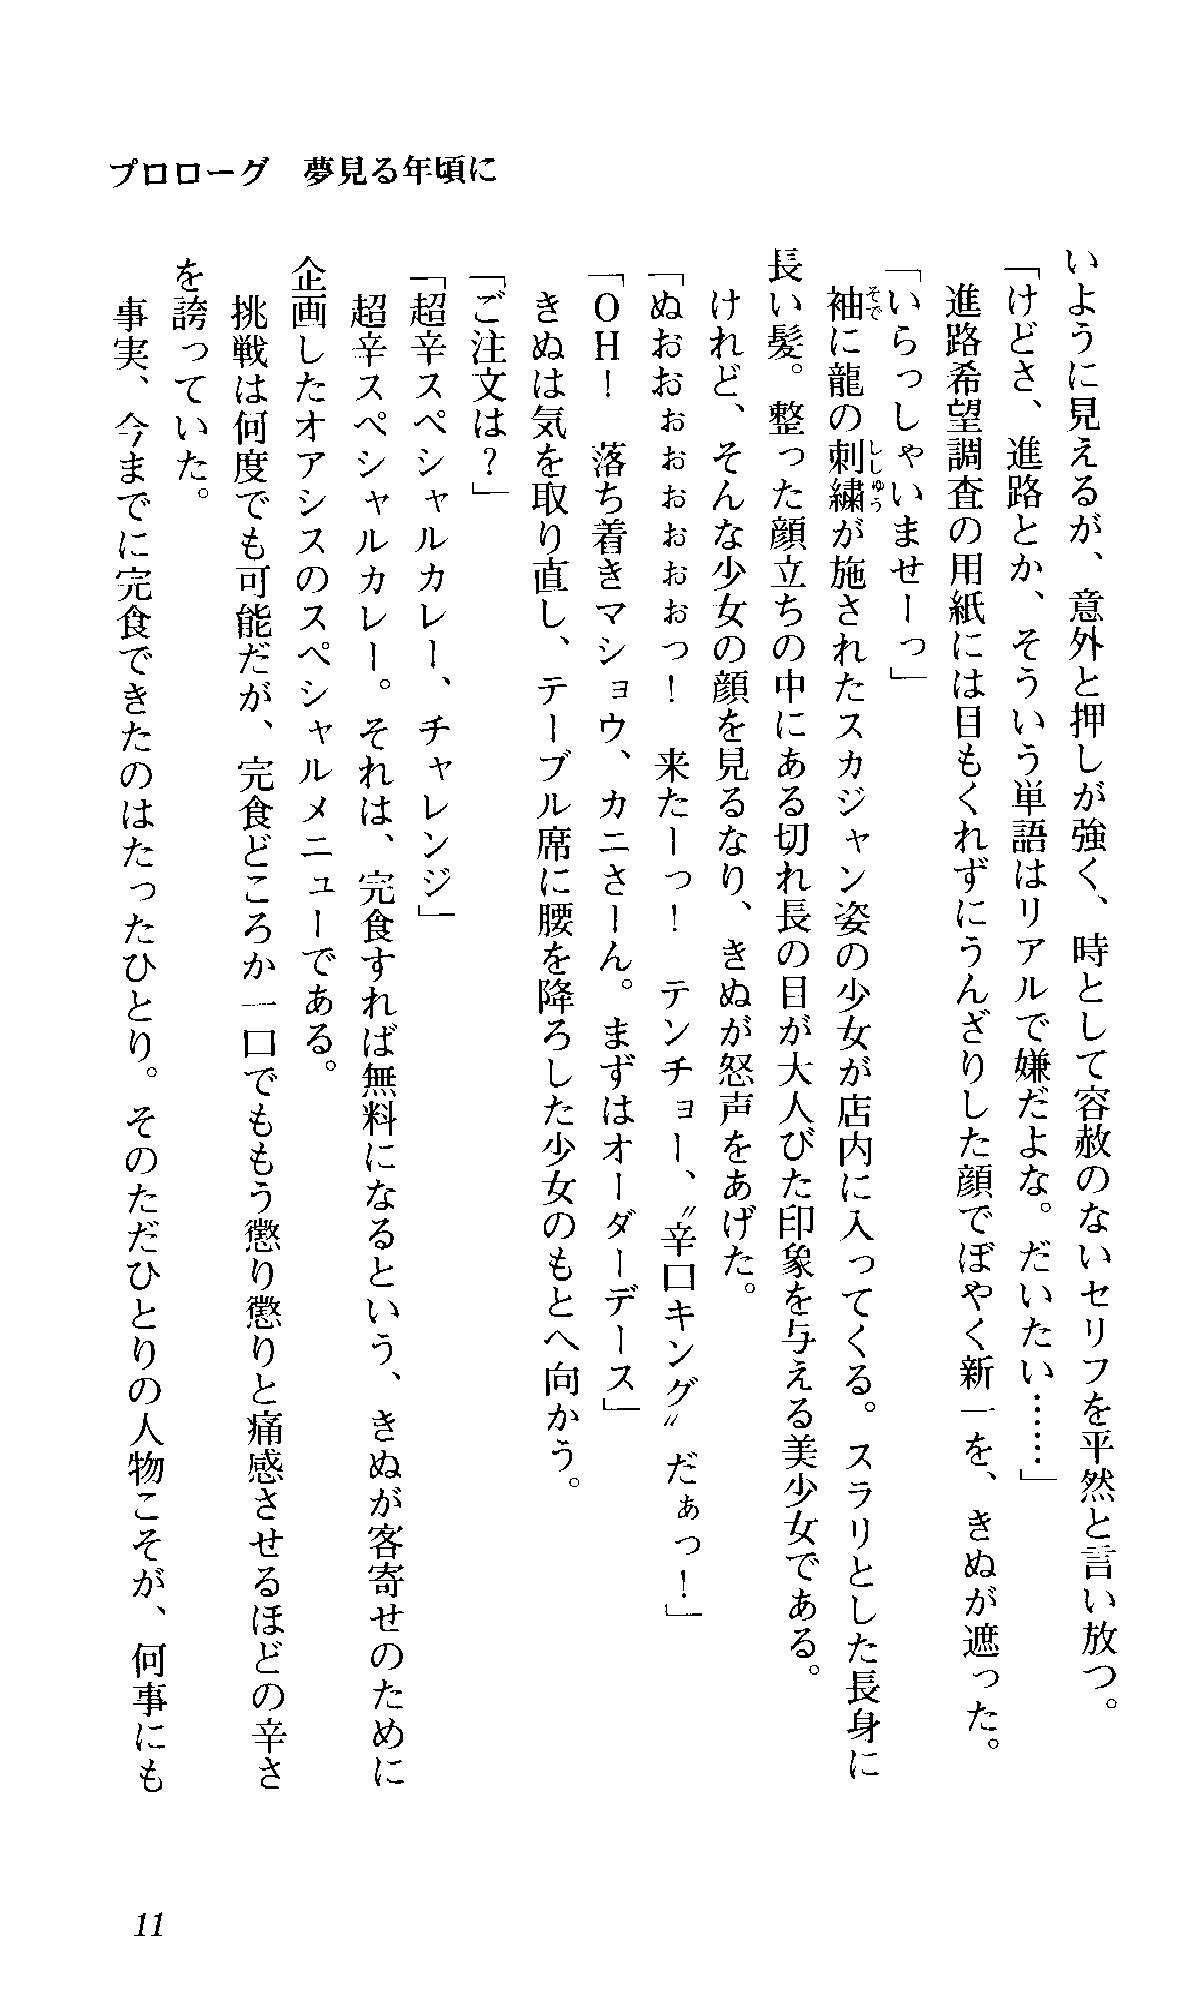 プロローグ　夢見る年頃に
いように見えるが、意外と押しが強く、時として容赦のないセリフを平然と言い放つ。
「けどさ、進路とか、そういう単語はリアルで嫌だよな。だいたい……」
進路希望調査の用紙には目もくれずにうんざりした顔でぼやく新一を、きぬが遮った。
「いらっしゃいませーっ」
袖に龍の刺繍が施されたスカジャン姿の少女が店内に入ってくる。スラリとした長身に
長い髪。整った顔立ちの中にある切れ長の目が大人びた印象を与える美少女である。
けれど、そんな少女の顔を見るなり、きぬが怒声をあげた。
「ぬおおぉぉぉぉぉぉっ！　来たーっ！　テンチョー、〝辛口キング〟だぁっ！」
「ＯＨ！　落ち着きマショウ、カニさーん。まずはオーダーデース」
きぬは気を取り直し、テーブル席に腰を降ろした少女のもとへ向かう。
「ご注文は？」
「超辛スペシャルカレー、チャレンジ」
超辛スペシャルカレー。それは、完食すれば無料になるという、きぬが客寄せのために
企画したオアシスのスペシャルメニューである。
挑戦は何度でも可能だが、完食どころか一口でももう懲り懲りと痛感させるほどの辛さ
を誇っていた。
事実、今までに完食できたのはたったひとり。そのただひとりの人物こそが、何事にも
11